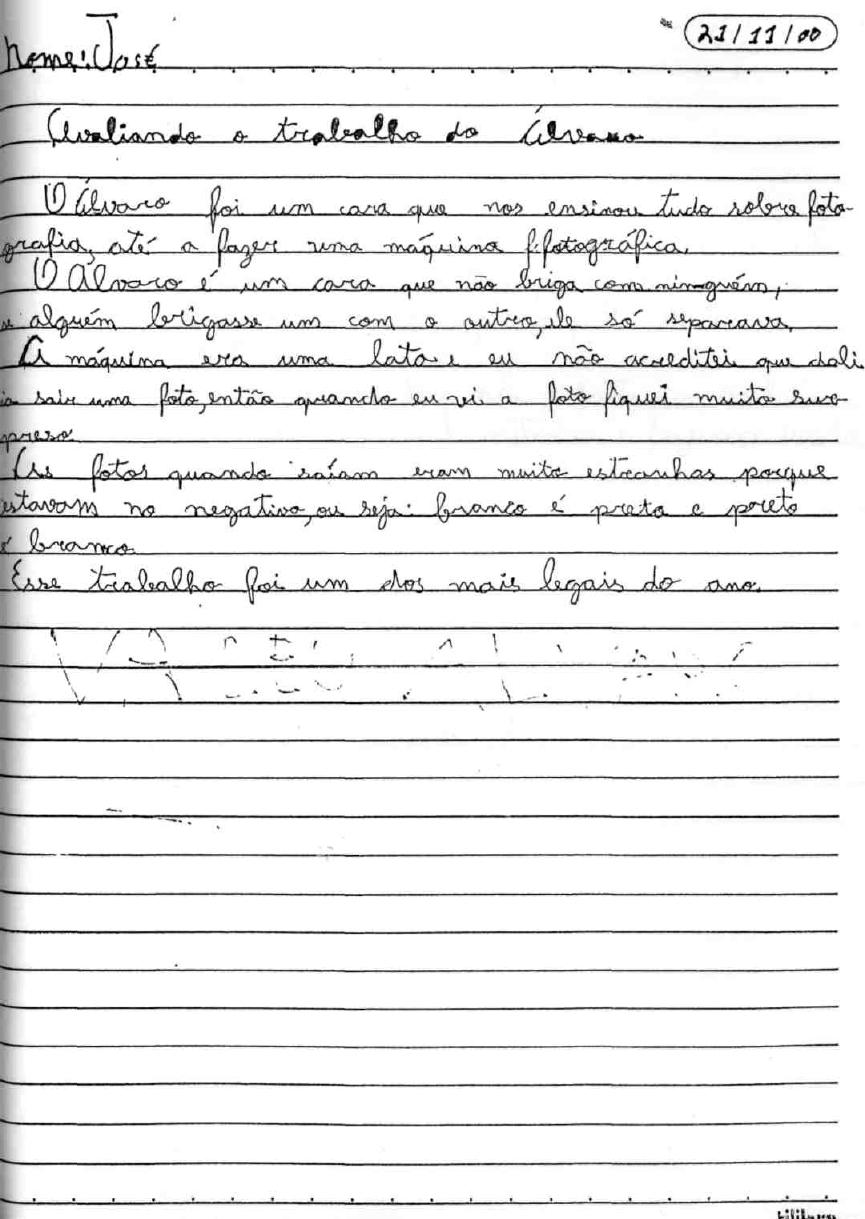 21/11/00
Nome: José
Avaliando o trabalho do Álvaro
O Álvaro foi um cara que nos ensinou tudo sobre foto-
grafia, até a fazer uma máquina f.fotográfica.
O Álvaro é um cara que não briga com ninguém,
se alguém brigasse um com o outro, ele só separava.
A máquina era uma lata e eu não acreditei que dali
ia sair uma foto, então quando eu vi a foto fiquei muito sur-
preso
As fotos quando saíam eram muito estranhas porque
estavam no negativo, ou seja: branco é preto e preto
é branco
Esse trabalho foi um dos mais legais do ano.